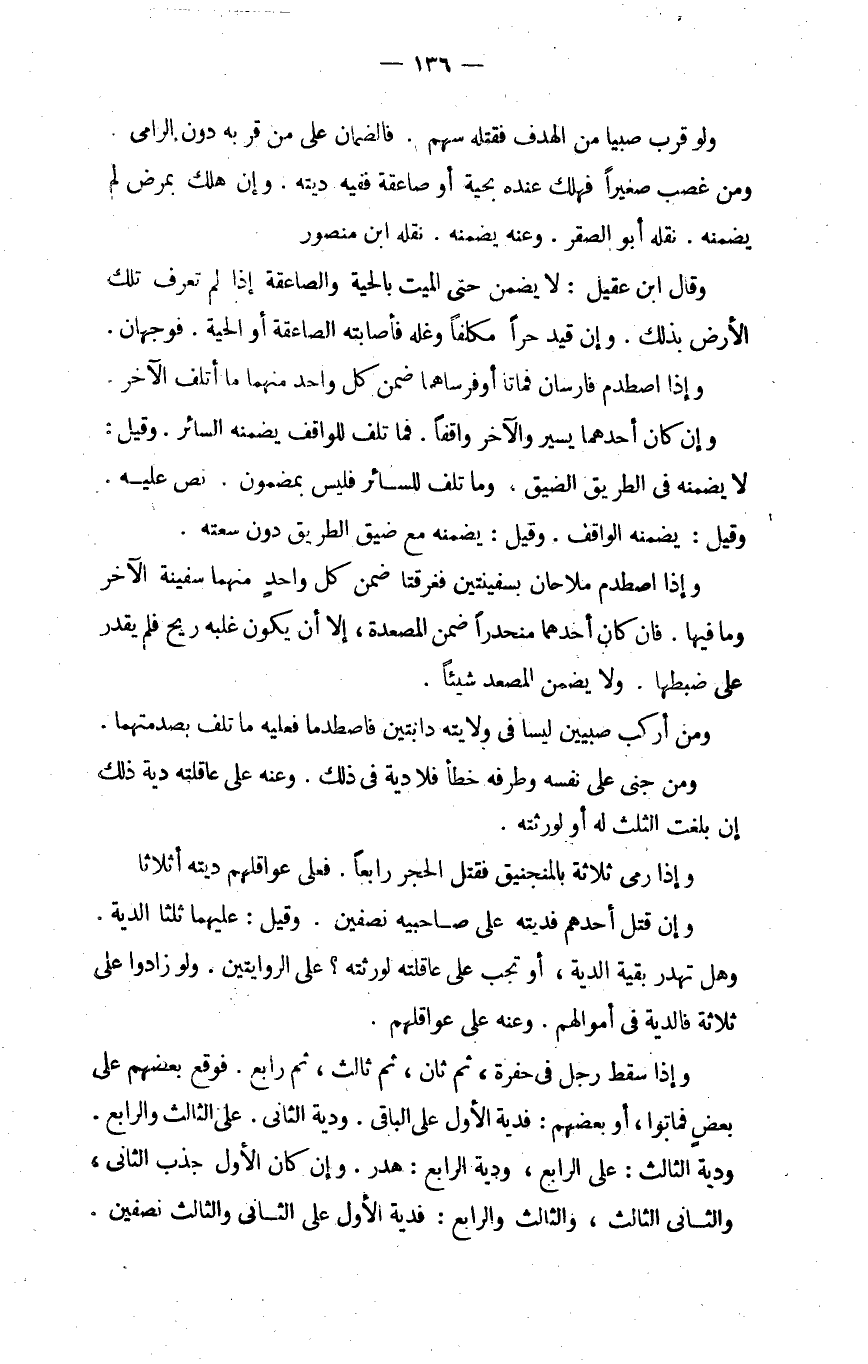 — ١٣٦ —
ولو قرب صبيا من الهدف فقتله سهم . فالضمان على من قربه دون الرامى .
ومن غصب صغيراً فهلك عنده بحية أو صاعقة ففيه ديته . وإن هلك بمرض لم
يضمنه . نقله أبو الصقر . وعنه يضمنه . نقله ابن منصور
وقال ابن عقيل : لا يضمن حتى الميت بالحية والصاعقة إذا لم تعرف تلك
الأرض بذلك . وإن قيد حراً مكلفاً وغله فأصابته الصاعقة أو الحية . فوجهان .
وإذا اصطدم فارسان فماتا أوفرساهما ضمن كل واحد منهما ما أتلف الآخر .
وإن كان أحدهما يسير والآخر واقفاً . فما تلف للواقف يضمنه السائر . وقيل :
لا يضمنه فى الطريق الضيق ، وما تلف للسائر فليس بمضمون . نص عليه .
وقيل : يضمنه الواقف . وقيل : يضمنه مع ضيق الطريق دون سعته .
وإذا اصطدم ملاحان بسفينتين فغرقتا ضمن كل واحدٍ منهما سفينة الآخر
وما فيها . فان كان أحدهما منحدراً ضمن المصعدة ، إلا أن يكون غلبه ريح فلم يقدر
على ضبطها . ولا يضمن المصعد شيئاً .
ومن أركب صبيين ليسا فى ولايته دابتين فاصطدما فعليه ما تلف بصدمتهما .
ومن جنى على نفسه وطرفه خطأ فلا دية فى ذلك . وعنه على عاقلته دية ذلك
إن بلغت الثلث له أو لورثته .
وإذا رمى ثلاثة بالمنجنيق فقتل الحجر رابعاً . فعلى عواقلهم ديته أثلاثا
وإن قتل أحدهم فديته على صاحبيه نصفين . وقيل : عليهما ثلثا الدية .
وهل تهدر بقية الدية ، أو تجب على عاقلته لورثته ؟ على الروايتين . ولو زادوا على
ثلاثة فالدية فى أموالهم . وعنه على عواقلهم .
وإذا سقط رجل فى حفرة ، ثم ثان ، ثم ثالث ، ثم رابع . فوقع بعضهم على
بعضٍ فماتوا ، أو بعضهم : فدية الأول على الباقى . ودية الثانى . على الثالث والرابع .
ودية الثالث : على الرابع ، ودية الرابع : هدر . وإن كان الأول جذب الثانى ،
والثانى الثالث ، والثالث والرابع : فدية الأول على الثانى والثالث نصفين .